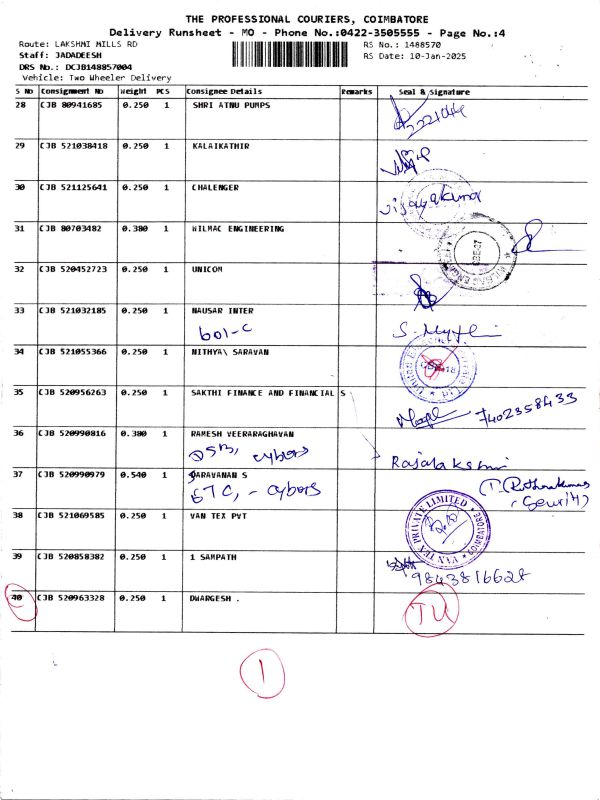 THE PROFESSIONAL COURIERS, COIMBATORE
Delivery Runsheet - MO - Phone No.:0422-3505555 - Page No.:4
Route: LAKSHMI MILLS RD RS No.: 1488570
Staff: JADADEESH RS Date: 10-Jan-2025
DRS No.: DCJB148857004
Vehicle: Two Wheeler Delivery
S No Consignment No Weight PCS Consignee Details Remarks Seal & Signature
28 CJB 80941685 0.250 1 SHRI ATNU PUMPS
29 CJB 521038418 0.250 1 KALAIKATHIR
30 CJB 521125641 0.250 1 CHALENGER
Vijayakumar
31 CJB 80703482 0.380 1 WILMAC ENGINEERING
32 CJB 520452723 0.250 1 UNICOM
33 CJB 521032185 0.250 1 NAUSAR INTER
601-C
34 CJB 521055366 0.250 1 NITHYA\ SARAVAN
35 CJB 520956263 0.250 1 SAKTHI FINANCE AND FINANCIAL S
7402358433
36 CJB 520990816 0.380 1 RAMESH VEERARAGHAVAN
Rajalakshmi
37 CJB 520990979 0.540 1 SARAVANAN S
38 CJB 521069585 0.250 1 VAN TEX PVT
VAN TEX PRIVATE LIMITED
COIMBATORE
39 CJB 520858382 0.250 1 1 SAMPATH
9843816628
40 CJB 520963328 0.250 1 DWARGESH .
1